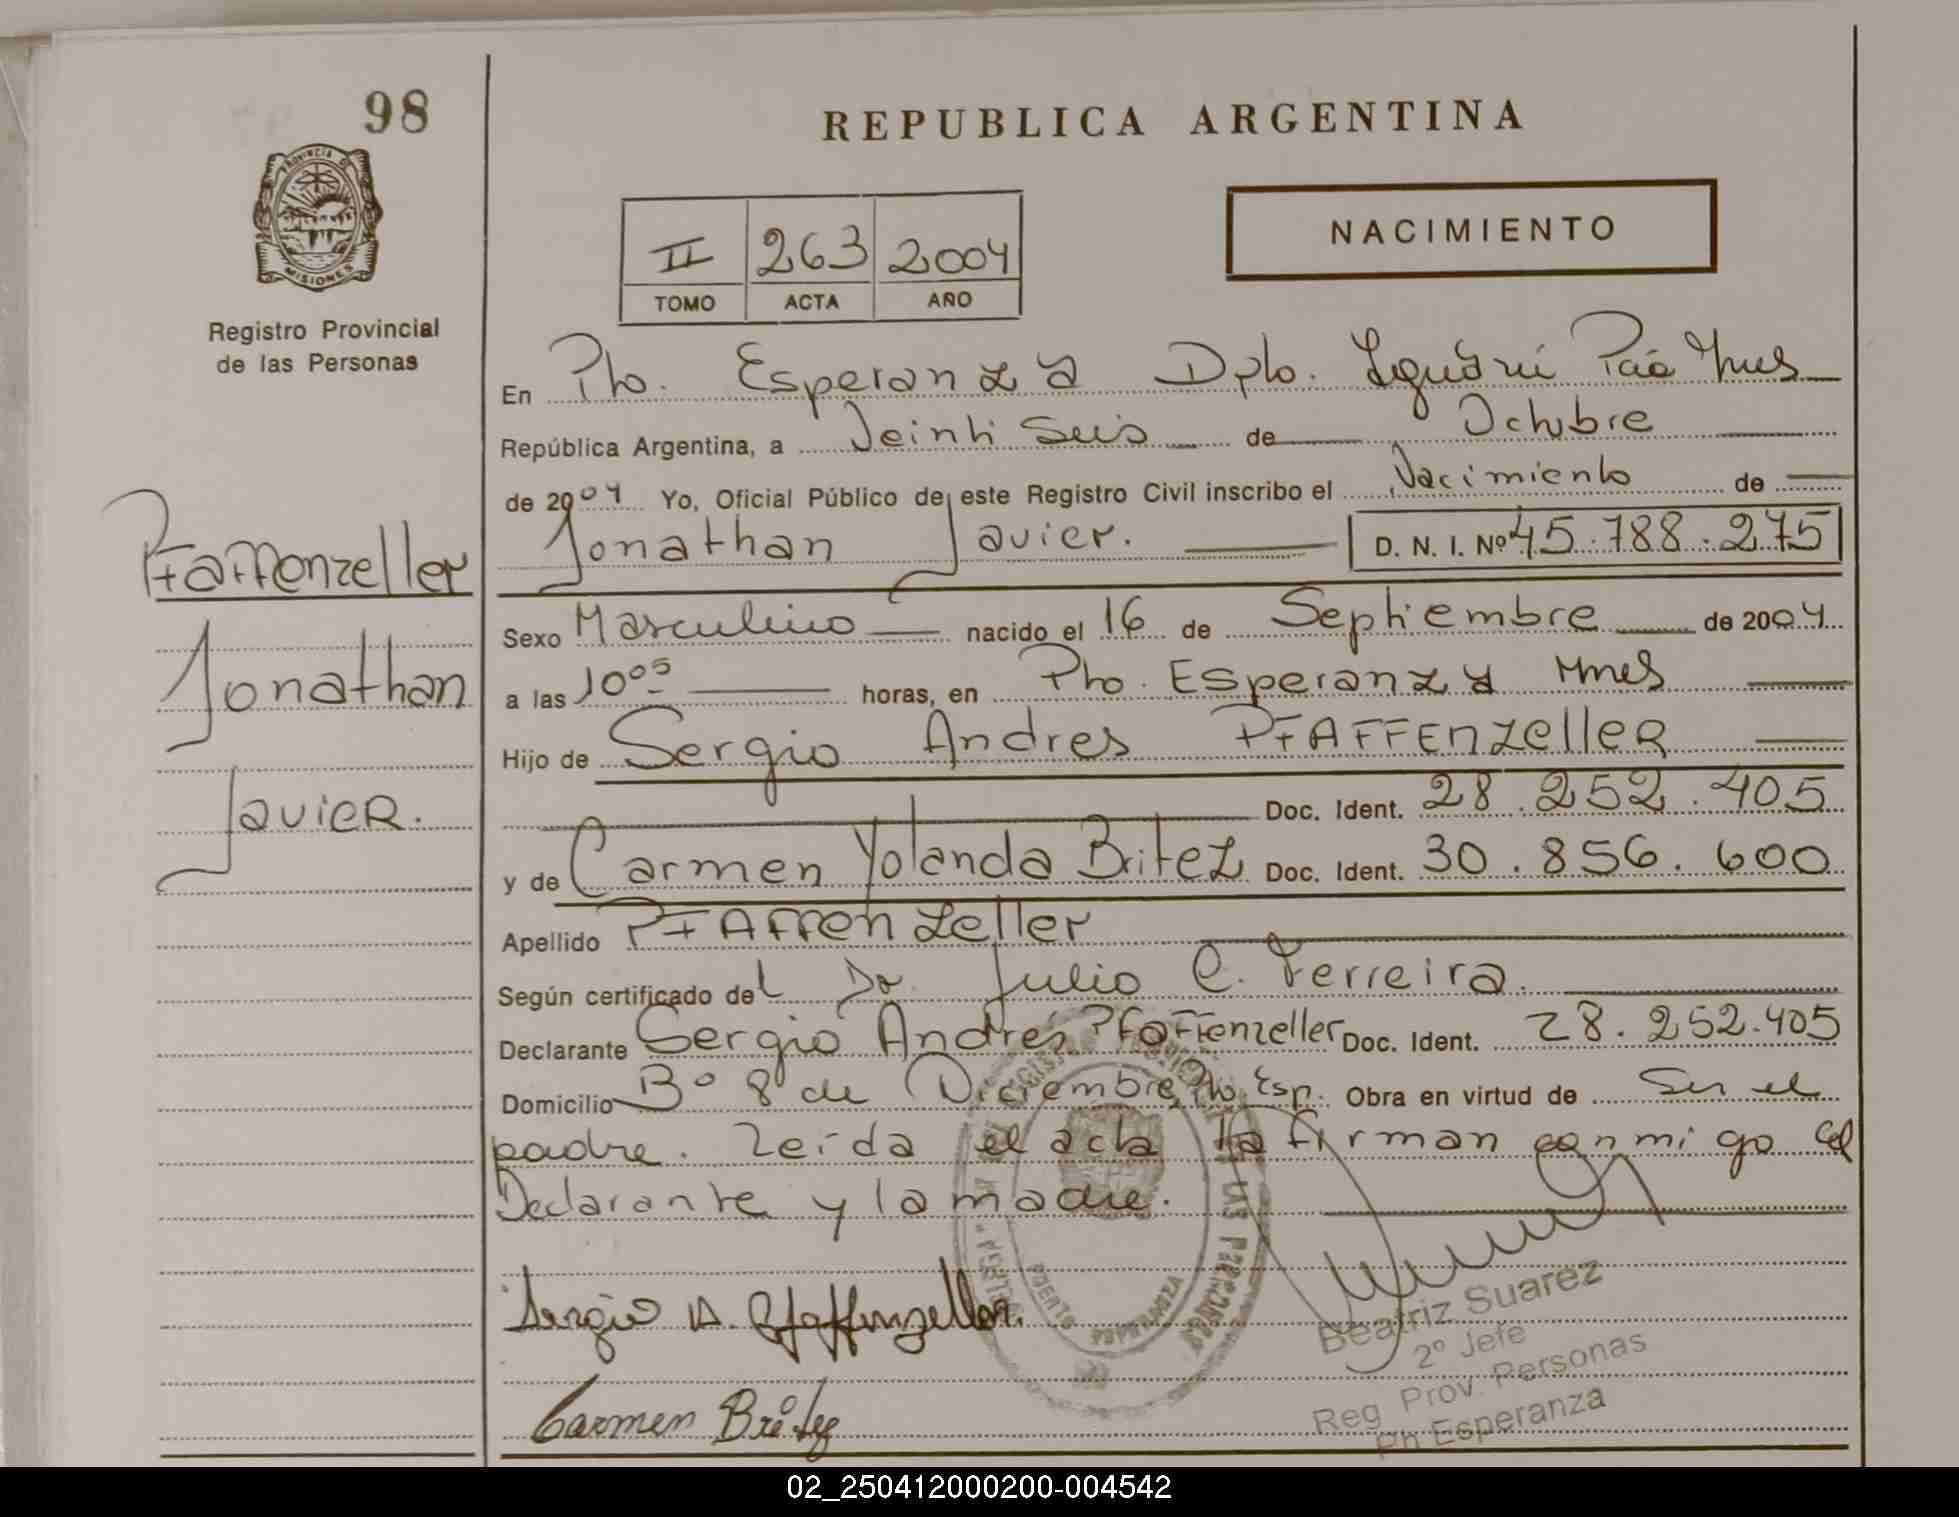 98
PROVINCIA DE
MISIONES
Registro Provincial
de las Personas
Pfaffenzeller
Jonathan
Javier.
REPUBLICA ARGENTINA
II 263 2004
TOMO ACTA AÑO
NACIMIENTO
En Pto. Esperanza Dpto. Iguazú Pcia Mnes
República Argentina, a Veinti Seis de Octubre
de 2004 Yo, Oficial Público de este Registro Civil inscribo el Nacimiento de
Jonathan Javier. D. N. I. Nº 45.788.275
Sexo Masculino nacido el 16 de Septiembre de 2004
a las 10⁰⁵ horas, en Pto. Esperanza Mnes
Hijo de Sergio Andres PFAFFENZELLER
Doc. Ident. 28.252.405
y de Carmen Yolanda Britez Doc. Ident. 30.856.600
Apellido PFAFFENZELLER
Según certificado del Dr. Julio C. Ferreira.
Declarante Sergio Andrés Pfaffenzeller Doc. Ident. 28.252.405
Domicilio Bº 8 de Diciembre, Pto Esp. Obra en virtud de Ser el
padre. Leída el acta la firman conmigo el
Declarante y la madre.
PUERTO ESPERANZA
Sergio A. Pfaffenzeller
Carmen Britez
Beatriz Suarez
2º Jefe
Reg Prov. Personas
Pto Esperanza
02_250412000200-004542